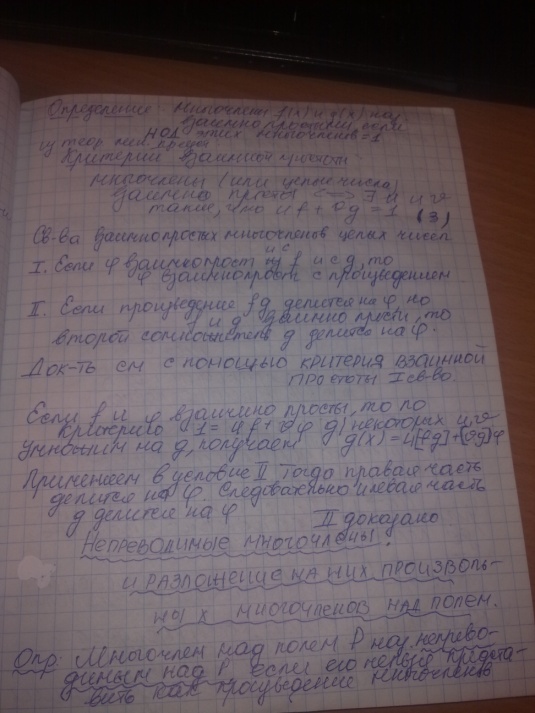 Определение многочлены f(x) и g(x) наз.
взаимно простыми если
НОД этих многочленов = 1
из теор. лин.
Критерий взаимной простоты
многочлены (или целые числа)
взаимно просты <=> ∃ u и v
такие, что uf + vg = 1 (3)
Св-ва взаимнопростых многочленов целых чисел
I. Если φ взаимнопрост и с f и с g, то
φ взаимнопрост с произведением
II. Если произведение fg делится на φ но
f и φ взаимно просты, то
второй сомножитель g делится на φ.
Док-ть см с помощью критерия взаимной
простоты I св-во.
Если f и φ взаимно просты, то по
критерию 1 = uf + vφ д/ некоторых u, v
умножим на g, получаем g(x) = u[fg]+[vg]φ
Применяем в условие II Тогда правая часть
делится на φ следовательно и левая часть
g делится на φ II доказано.
Неприводимые многочлены
и разложение на них произволь-
ных многочленов над полем.
Опр: Многочлен над полем P наз. неприво-
димым над P если его нельзя предста-
вить как произведение многочленов